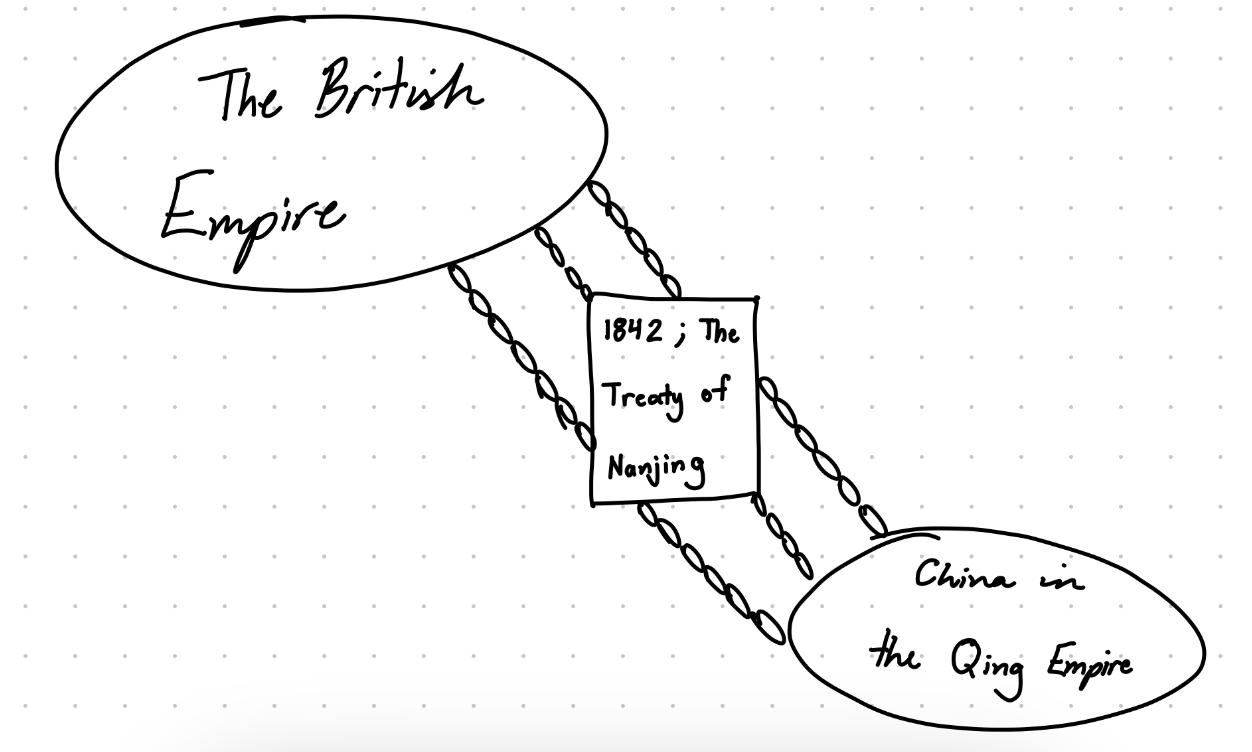 The British
Empire
1842 ; The
Treaty of
Nanjing
China in
the Qing Empire